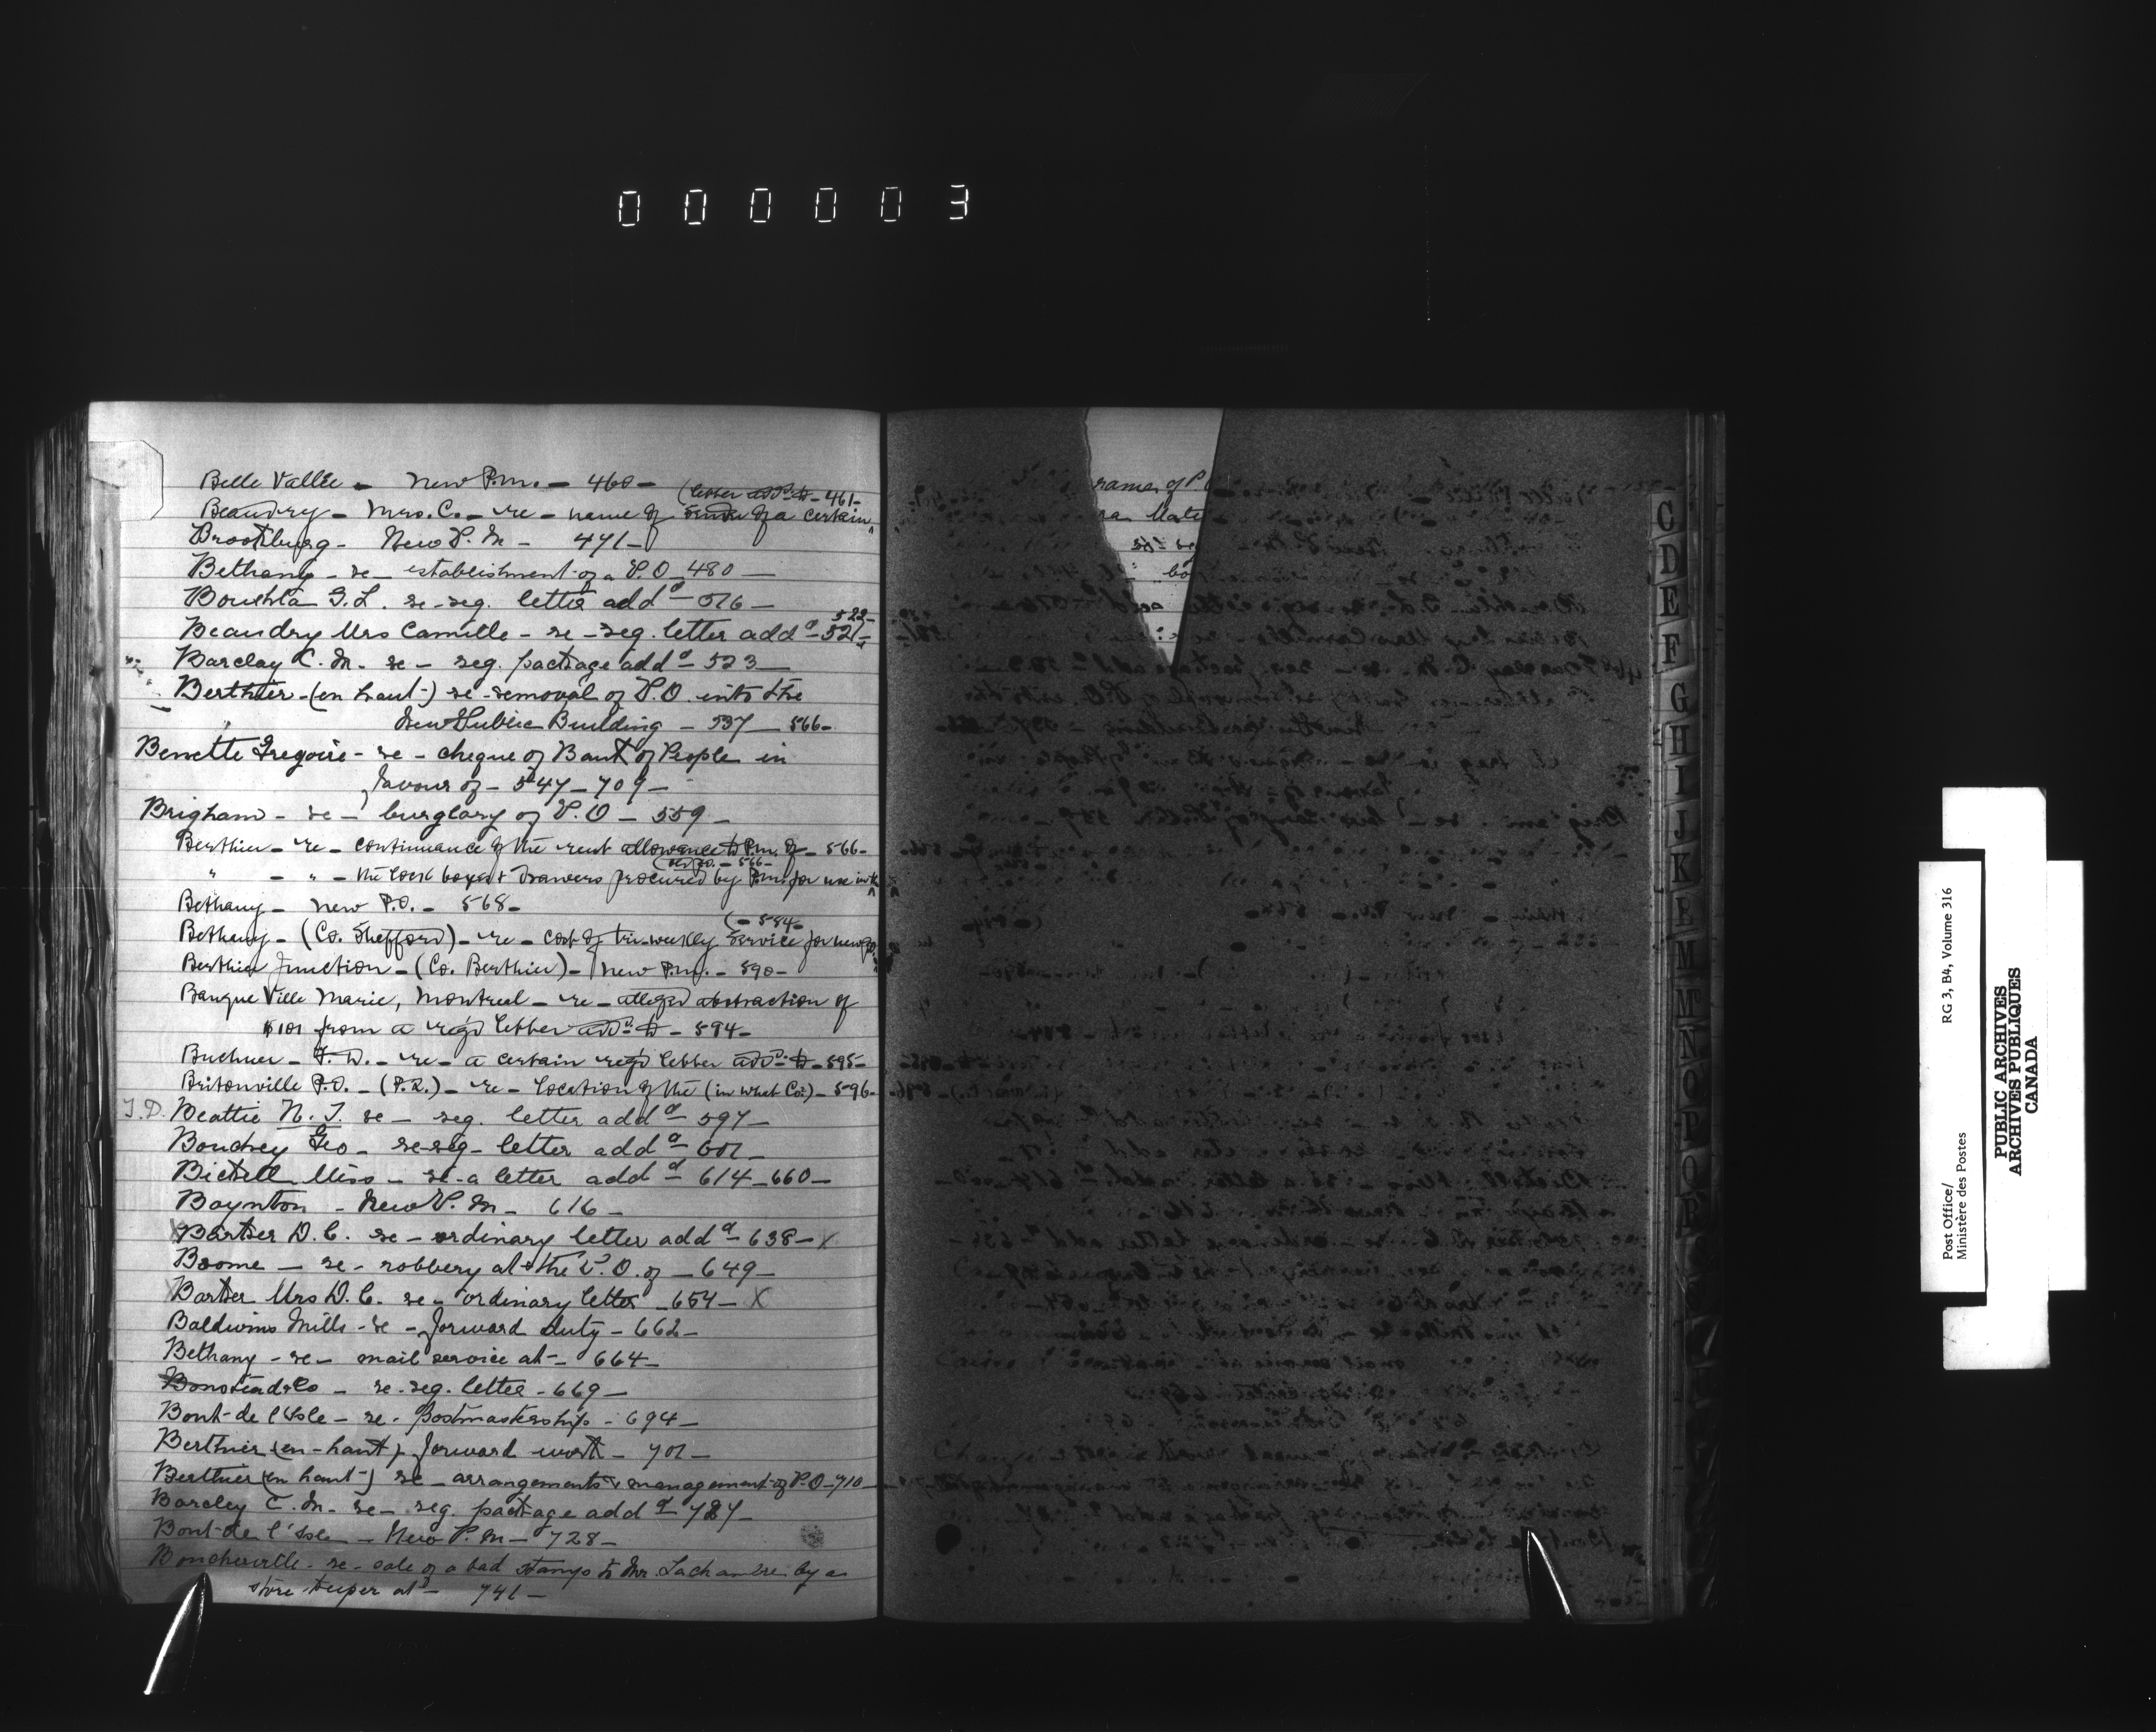 000003
Belle Vallée - New P.m. - 460 -
(letter add^d to - 461 -
Beaudry - Mrs. C. - re - name of sender of a certain
Brookburg - New P. M - 471 -
Bethany - re - establishment of a P.O - 480 -
G. L. re - reg. letter add^d - 516 -
522 -
Beaudry Mrs Camille - re - reg. letter add^d - 521 -
Barclay C. M. re - reg. package add^d - 523 -
Berthier - (en haut) re - removal of P.O. into the
New Public Building - 537 - 566 -
Gregoire - re - cheque of Bank of People in
favour of - 547 - 709 -
Brigham - re - burglary of P.O - 559 -
Berthier - re - continuance of the rent allowance to P.m. of - 566 -
(old P.O. - 566 -
" - " - the lock boxes & drawers procured by P.m. for use in the
Bethany - new P.O. - 568 -
( - 584 -
Bethany - (Co. Shefford) - re - cost of tri-weekly service for new P.O.
Berthier Junction - (Co. Berthier) - New P.m. - 590 -
Banque Ville Marie, Montreal - re - alleged abstraction of
$101 from a reg'd letter add^d to - 594 -
Buchner - F. W. - re - a certain reg'd letter add^d to - 595 -
Britonville P.O. - (P.Q.) - re - location of the (in what Co.) - 596 -
J. D. Beattie N. J. re - reg. letter add^d - 597 -
Boudrey Geo - re-reg - letter add^d - 601 -
Bickell Miss - re - a letter add^d - 614 - 660 -
Boynton - New P. M - 616 -
X Barker D. C. re - ordinary letter add^d - 638 - X
Broome - re - robbery at the P.O. of - 649 -
X Barker Mrs D. C. re - ordinary letter - 654 - X
Baldwins Mills - re - forward duty - 662 -
Bethany - re - mail service at - 664 -
& Co - re - reg. letter - 669 -
Bout-de l'Isle - re - postmastership - 694 -
Berthier (en-haut) forward work - 701 -
Berthier (en haut) re - arrangements & management of P.O - 710 -
Barcley C. M. re - reg. package add^d - 727 -
Bout-de l'Isle - New P. M - 728 -
Boucherville - re - sale of a bad stamp to Mr. Lachambre by a
store keeper at - 741 -
of P.
Mate
C
D
E
F
G
H
I
J
K
E
M
Mc
N
O
P
Q
R
Post Office/
Ministère des Postes
RG 3, B4, Volume 316
PUBLIC ARCHIVES
ARCHIVES PUBLIQUES
CANADA